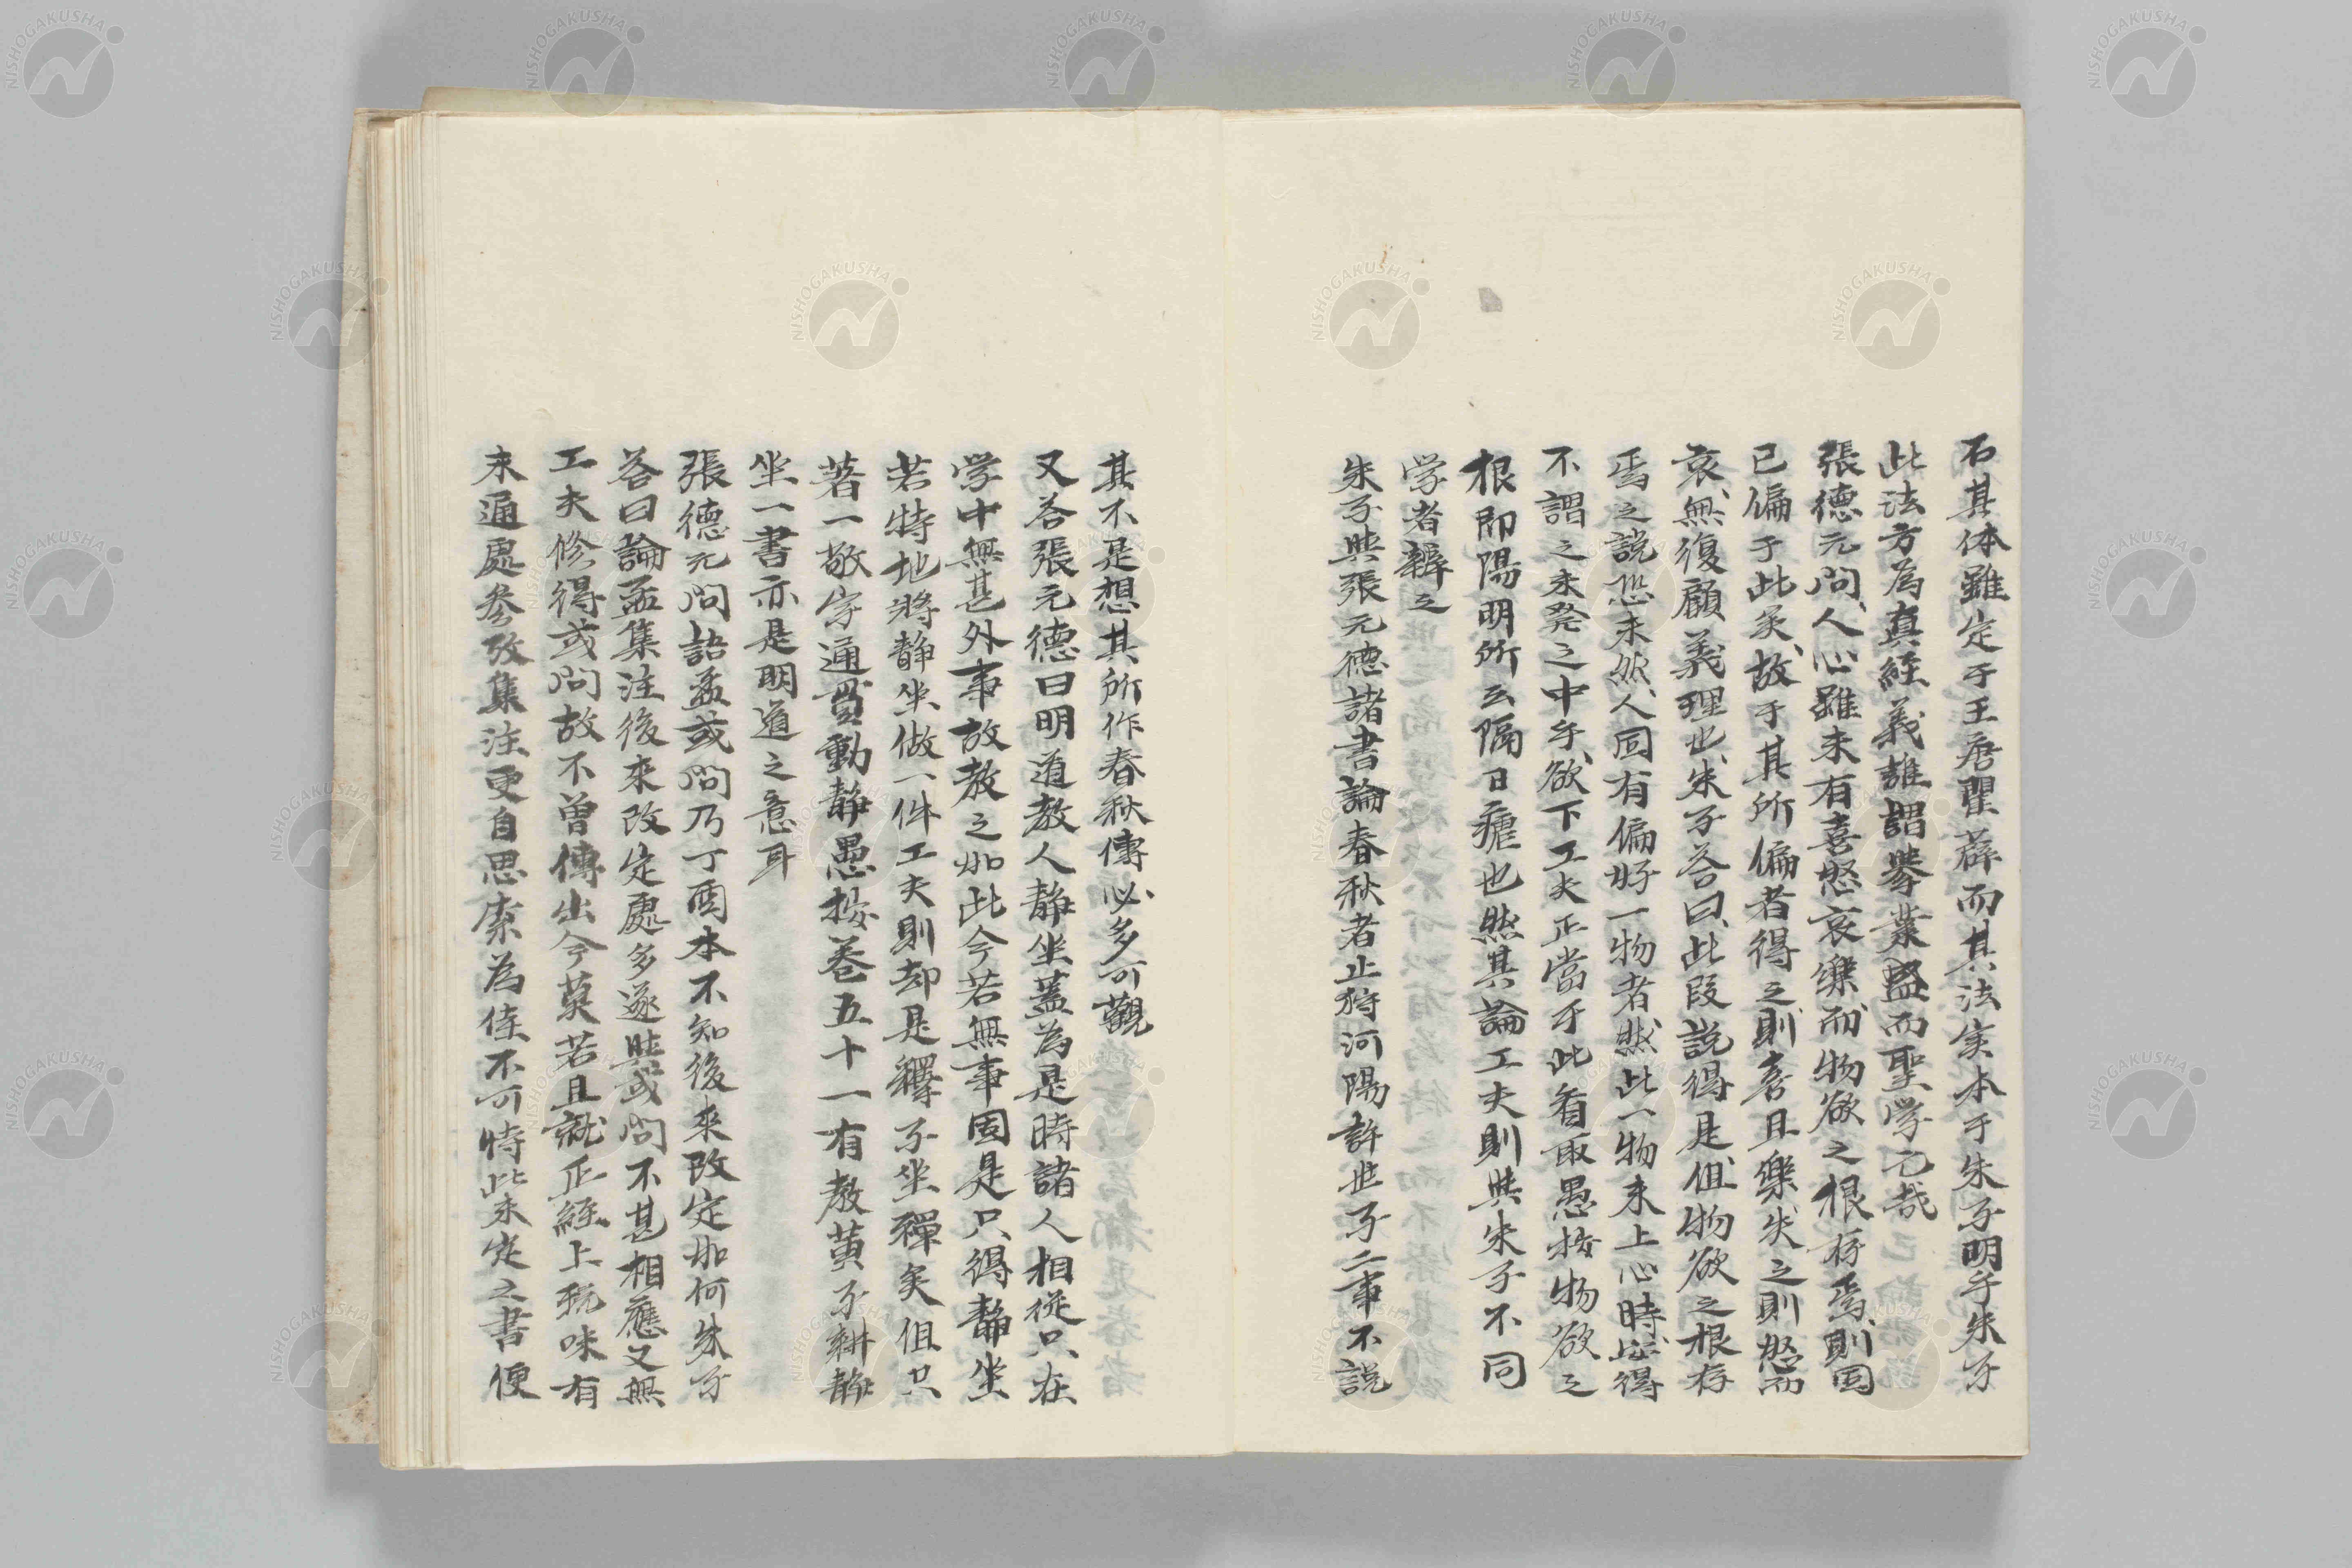 石其体雖定于王唐瞿薛而其法実本于朱子明乎朱子
此法方為真経義誰謂挙業盛而聖学亡哉
張徳元問人心雖未有喜怒哀楽而物欲之根存焉則固
已偏于此矣故于其所偏者得之則喜且楽失之則怒而
哀無復顧義理也朱子答曰此段説得是但物欲之根存
焉之説恐未然人固有偏好一物者然此一物未上心時安得
不謂之未発之中乎欲下工夫正当于此看取愚按物欲之
根即陽明所云隔日瘧也然其論工夫則與朱子不同
学者辨之
朱子與張元徳諸書論春秋者止狩河陽許世子二事不説
其不是想其所作春秋傳必多可觀
又答張元徳曰明道教人静坐蓋為是時諸人相従只在
学中無甚外事故教之如此今若無事固是只得静坐
若特地将静坐做一件工夫則却是釋子坐禪矣但只
著一敬字通貫動静愚按巻五十一有教黄子耕静
坐一書亦是明道之意耳
張徳元問語孟或問乃丁酉本不知後來改定如何朱子
答曰論孟集注後來改定處多遂與或問不甚相應又無
工夫修得或問故不曾傳出今莫若且就正経上玩味有
未通處参攷集注更自思索為佳不可恃此未定之書便